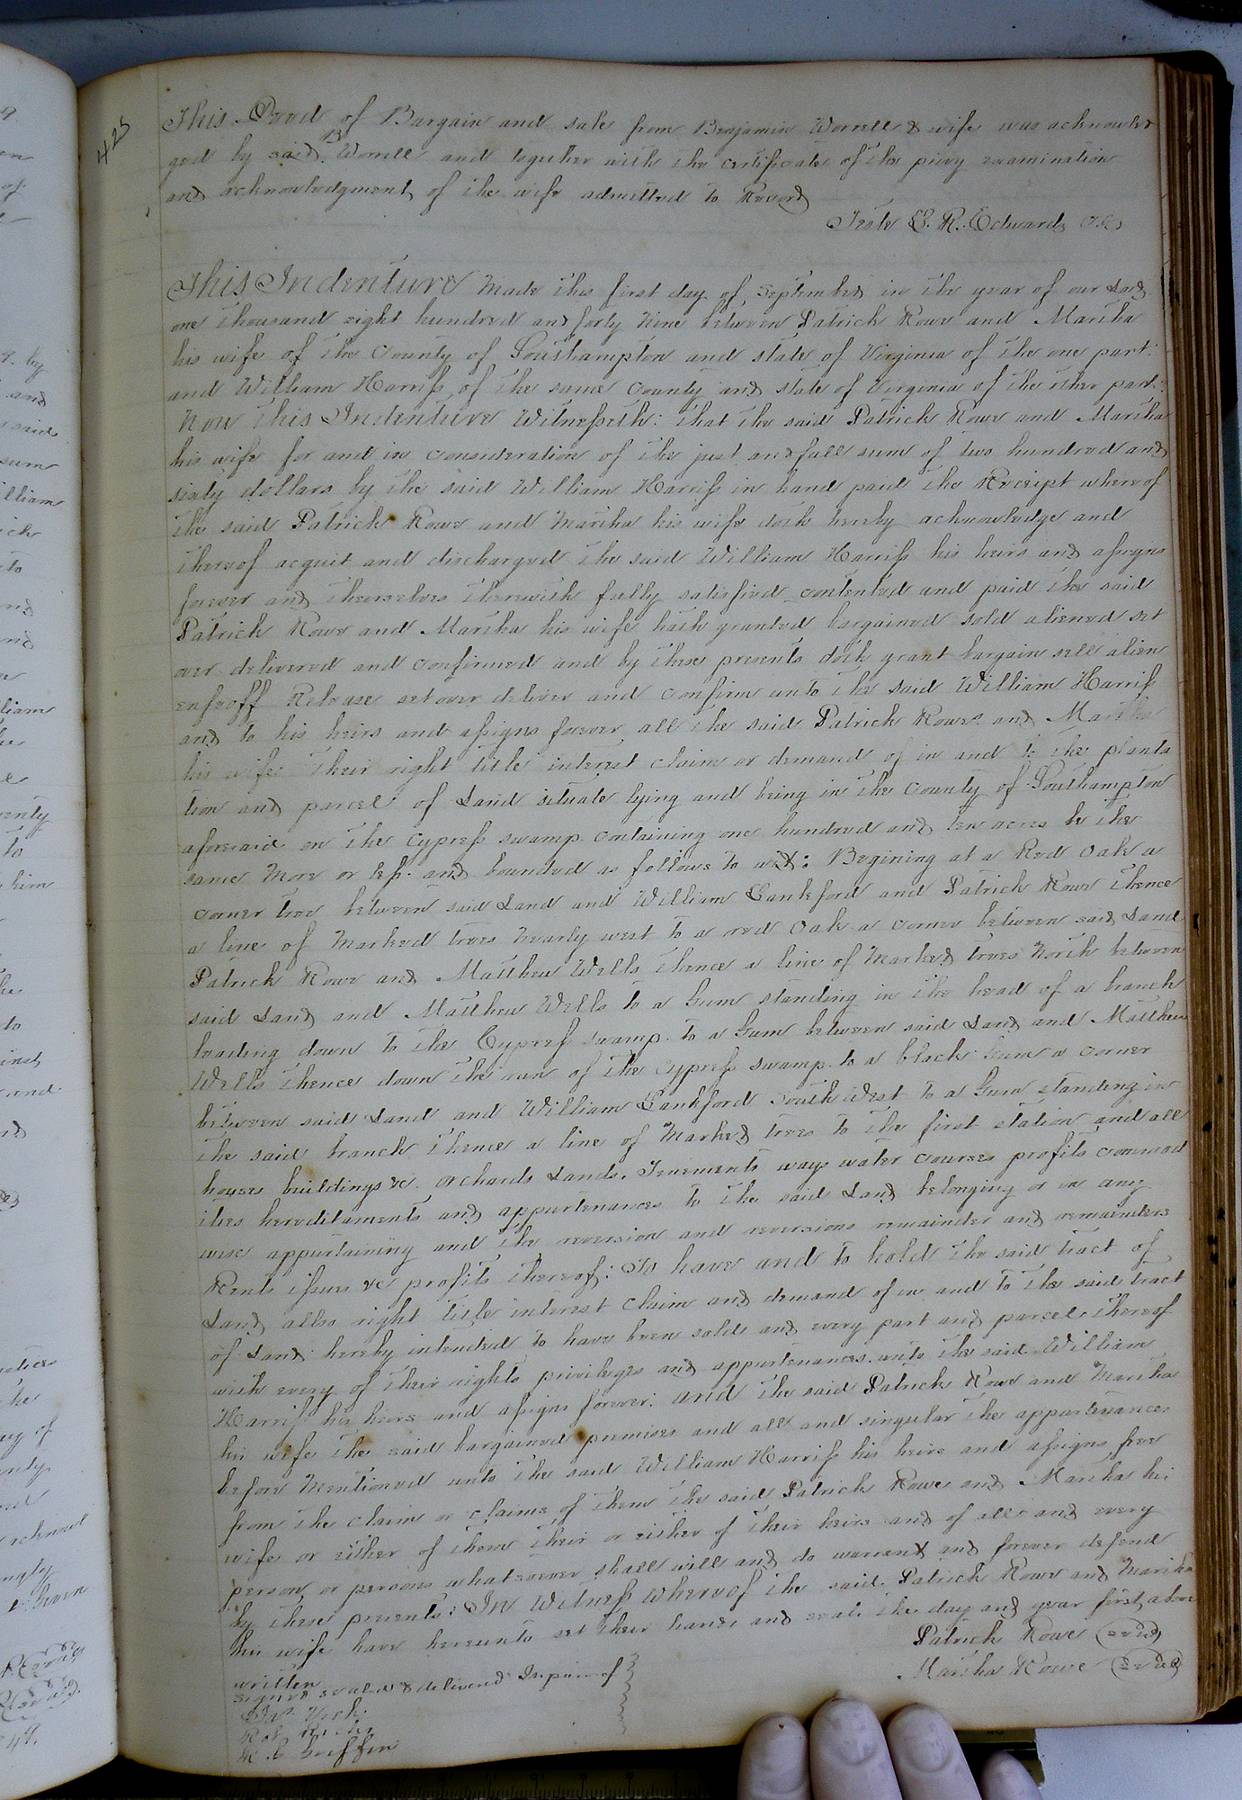 425
This Deed of Bargain and sale from Benjamin Worrell & wife was acknowled
ged by said B. Worrell and together with the certificate of the privy examination
and acknowledgment of the wife admitted to Record
Teste L. R. Edwards C.C.
This Indenture Made this first day of September in the year of our Lord
one thousand eight hundred and forty Nine between Patrick Rowe and Martha
his wife of the County of Southampton and state of Virginia of the one part
and William Harriss of the same county and state of Virginia of the other part:
Now This Indenture Witnesseth: That the said Patrick Rowe and Martha
his wife for and in consideration of the just and full sum of two hundred and
sixty dollars by the said William Harriss in hand paid the Receipt whereof
the said Patrick Rowe and Martha his wife doth hereby acknowledge and
thereof acquit and discharged the said William Harriss his heirs and assigns
forever and themselves therewith fully satisfied contented and paid the said
Patrick Rowe and Martha his wife hath granted bargained sold aliened set
over delivered and confirmed and by these presents doth grant bargain sell alien
enfeoff Release set over deliver and confirm unto the said William Harriss
and to his heirs and assigns forever all the said Patrick Rowe and Martha
his wife Their right title interest claim or demand of in and to the planta
tion and parcel of Land situate lying and being in the County of Southampton
aforesaid on the Cypress swamp containing one hundred and ten acres be the
same More or less. and bounded as follows to wit: Begining at a Red Oak a
corner tree between said Land and William Lankford and Patrick Rowe thence
a line of Marked trees Nearly west to a red Oak a corner between said Land
Patrick Rowe and Matthew Wells thence a line of Marked trees North between
said Land and Matthew Wells to a Gum standing in the head of a branch
leading down to the Cypress swamp to a Gum between said Land and Matthew
Wells thence down the run of the Cypress swamp to a black Gum a corner
between said Land and William Lankford South West to a Gum standing in
the said branch thence a line of Marked trees to the first station and all
houses buildings &c. orchards Lands, Tenements ways water courses profits commod
ities hereditaments and appurtenances to the said Land belonging or in any
wise appurtaining and the reversion and reversions remainder and remainders
Rents issues &c profits thereof: To have and to hold the said tract of
Land allso right title interest claim and demand of in and to the said tract
of Land hereby intended to have been sold and every part and parcel thereof
with every of their rights privileges and appurtenances unto the said William
Harriss his heirs and assigns forever: and the said Patrick Rowe and Martha
his wife the said bargained premises and all and singular the appurtenances
before Mentioned unto the said William Harriss his heirs and assigns free
from the claim or claims of them the said Patrick Rowe and Martha his
wife or either of them their or either of their heirs and of all and every
person or persons whatsoever shall will and do warrant and forever defend
by these presents: In Witness whereof the said Patrick Rowe and Martha
his wife have hereunto set their hands and seals the day and year first above
written
Patrick Rowe (Seal)
Martha Rowe (Seal)
Signed sealed & delivered In prin of
Rob. Ricks
Griffin